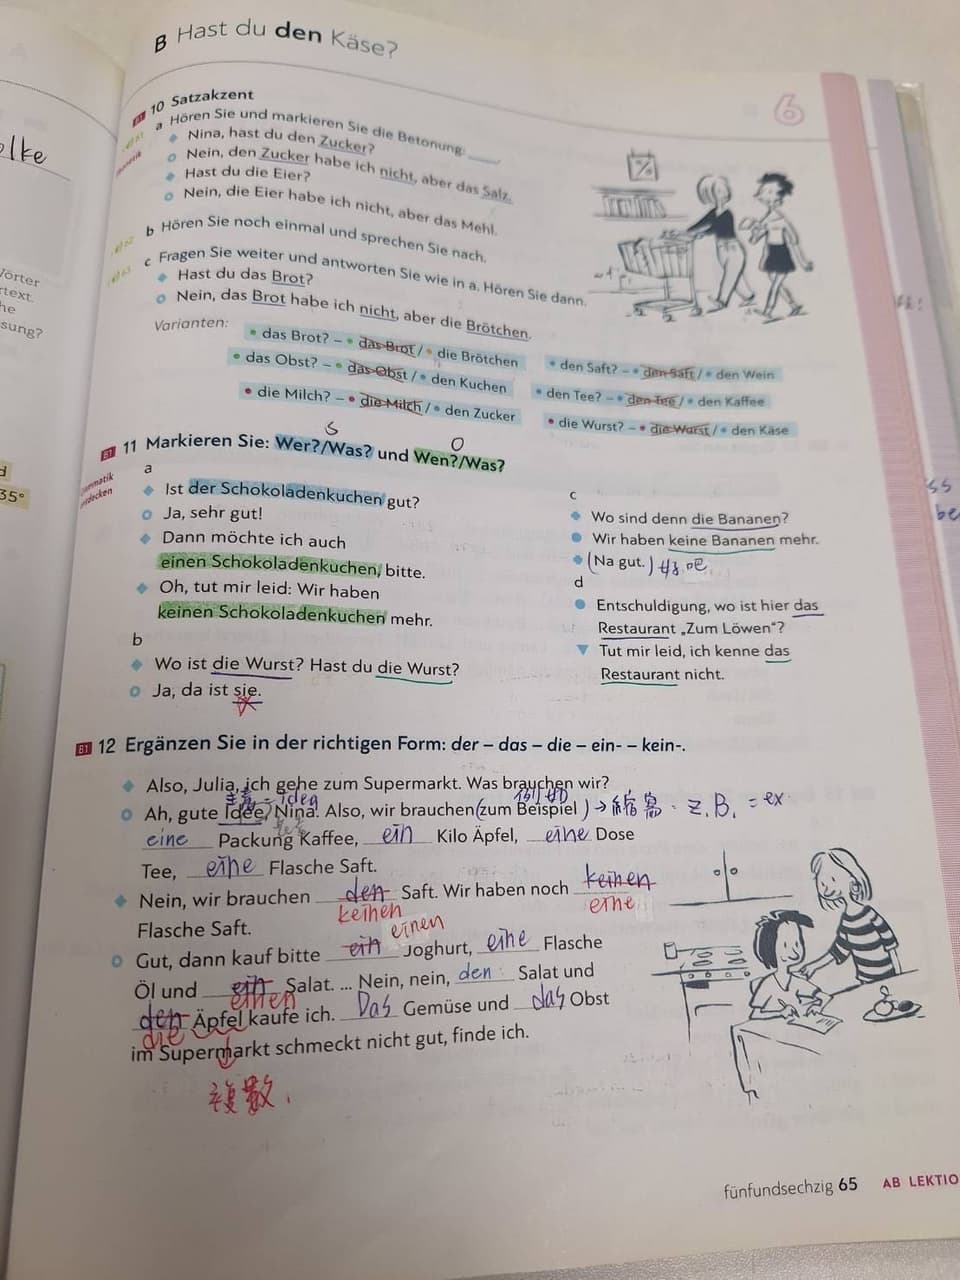 B Hast du den Käse?
6
B1 10 Satzakzent
a Hören Sie und markieren Sie die Betonung: ____
Nina, hast du den Zucker?
Nein, den Zucker habe ich nicht, aber das Salz.
Hast du die Eier?
Nein, die Eier habe ich nicht, aber das Mehl.
b Hören Sie noch einmal und sprechen Sie nach.
c Fragen Sie weiter und antworten Sie wie in a. Hören Sie dann.
Hast du das Brot?
Nein, das Brot habe ich nicht, aber die Brötchen.
Varianten:
das Brot? – das Brot / die Brötchen
das Obst? – das Obst / den Kuchen
die Milch? – die Milch / den Zucker
den Saft? – den Saft / den Wein
den Tee? – den Tee / den Kaffee
die Wurst? – die Wurst / den Käse
S O
B1 11 Markieren Sie: Wer?/Was? und Wen?/Was?
entdecken
a
Ist der Schokoladenkuchen gut?
Ja, sehr gut!
Dann möchte ich auch
einen Schokoladenkuchen, bitte.
Oh, tut mir leid: Wir haben
keinen Schokoladenkuchen mehr.
b
Wo ist die Wurst? Hast du die Wurst?
Ja, da ist sie.
c
Wo sind denn die Bananen?
Wir haben keine Bananen mehr.
(Na gut.) 好吧
d
Entschuldigung, wo ist hier das
Restaurant „Zum Löwen“?
Tut mir leid, ich kenne das
Restaurant nicht.
B1 12 Ergänzen Sie in der richtigen Form: der – das – die – ein- – kein-.
Also, Julia, ich gehe zum Supermarkt. Was brauchen wir?
意 = idea 例如
Ah, gute Idee, Nina. Also, wir brauchen (zum Beispiel) → 縮寫 : z.B. = ex
eine Packung Kaffee, ein Kilo Äpfel, eine Dose
Tee, eine Flasche Saft.
Nein, wir brauchen den Saft. Wir haben noch keinen
keinen eine
Flasche Saft.
einen
Gut, dann kauf bitte ein Joghurt, eine Flasche
Öl und ein Salat. ... Nein, nein, den Salat und
einen
den Äpfel kaufe ich. Das Gemüse und das Obst
die
im Supermarkt schmeckt nicht gut, finde ich.
複數.
fünfundsechzig 65 AB LEKTIO
elke
Wörter
rtext.
he
sung?
35°